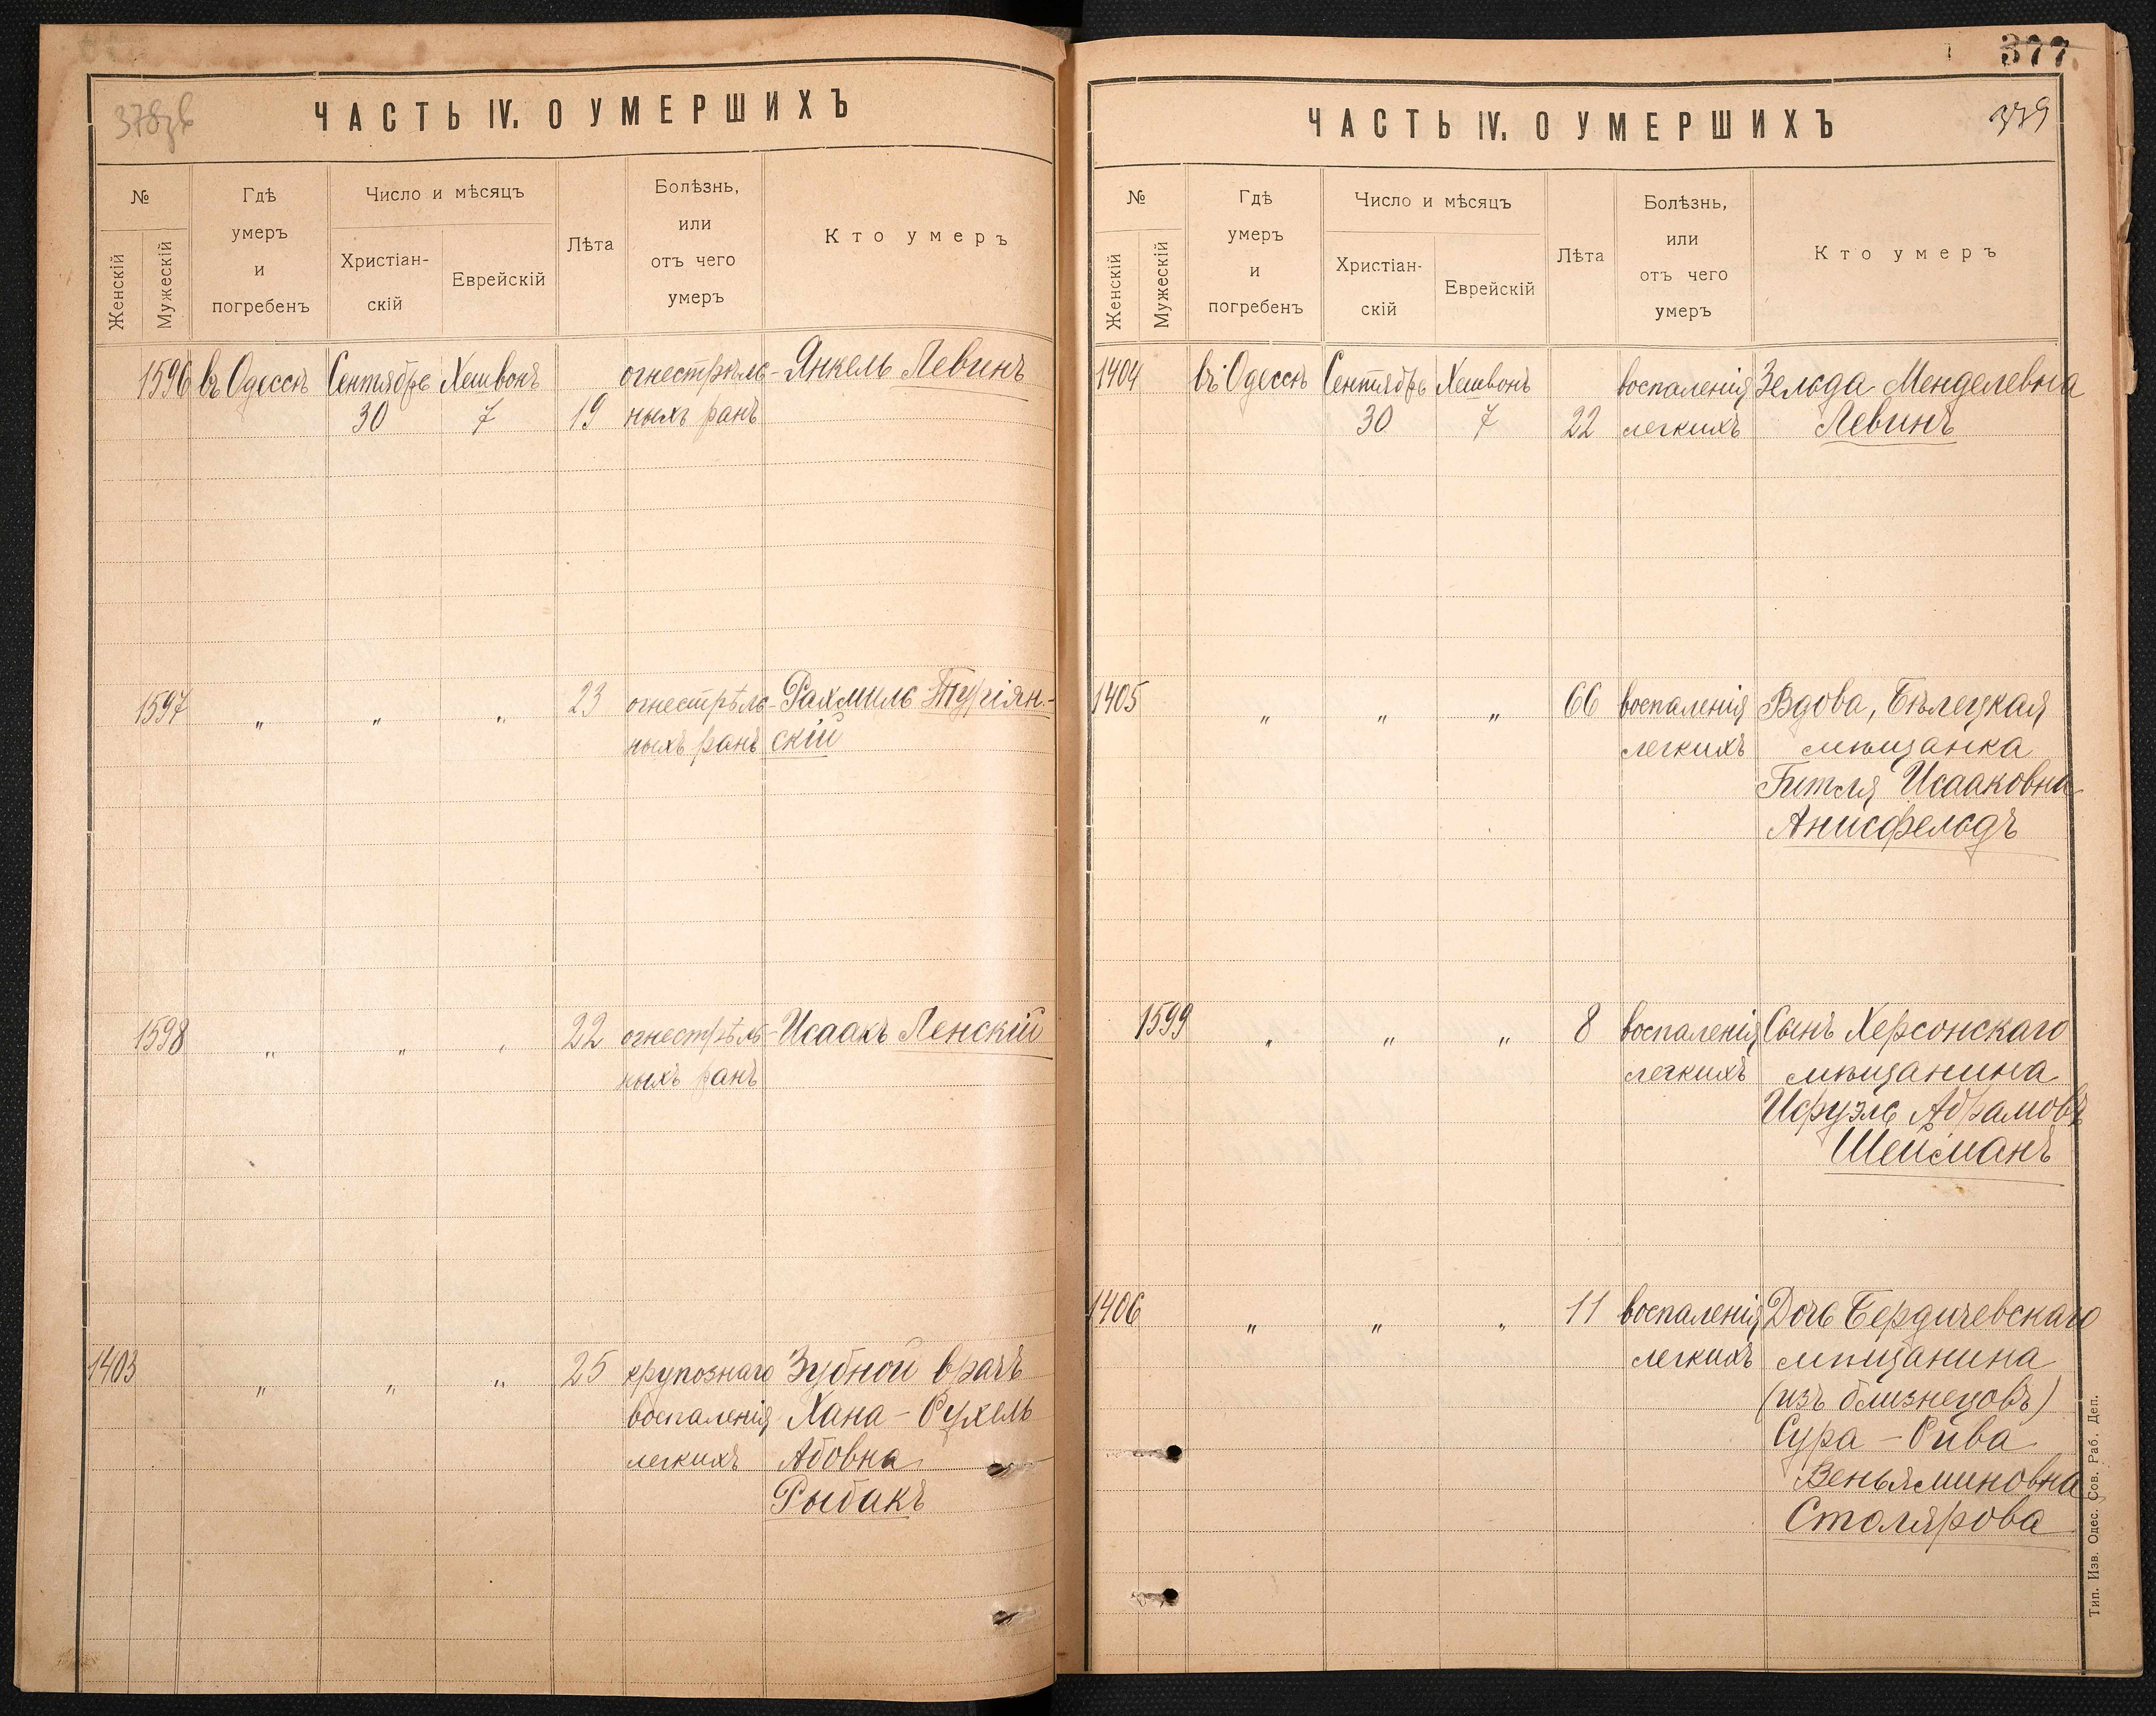 378зв
ЧАСТЬ IV. О УМЕРШИХЪ
№
Женскій
Мужескій
Гдѣ
умеръ
и
погребенъ
Число и мѣсяцъ
Христіан-
скій
Еврейскій
Лѣта
Болѣзнь,
или
отъ чего
умеръ
Кто умеръ
1596 въ Одессѣ Сентябрь Хешвонъ огнестрѣль- Янкель Левинъ
30 7 19 ныхъ ранъ
1597 " " " 23 огнестрѣль- Рахмиль
ныхъ ранъ скій
1598 " " " 22 огнестрѣль- Исаакъ Ленскій
ныхъ ранъ
1403 " " " 25 крупознаго Зубной врачъ
воспаленія Хана-Рухель
легкихъ Абовна
Рыбакъ
377
379
ЧАСТЬ IV. О УМЕРШИХЪ
№
Женскій
Мужескій
Гдѣ
умеръ
и
погребенъ
Число и мѣсяцъ
Христіан-
скій
Еврейскій
Лѣта
Болѣзнь,
или
отъ чего
умеръ
Кто умеръ
1404 въ Одессѣ Сентябрь Хешвонъ воспаленія Зельда Менделевна
30 7 22 легкихъ Левинъ
1405 " " " 66 воспаленія Вдова, Бѣлецкая
легкихъ мѣщанка
Гитля Исааковна
Анисфельдъ
1599 " " " 8 воспаленія Сынъ Херсонскаго
легкихъ мѣщанина
Исруэль Абрамовъ
Шейманъ
1406 " " " 11 воспаленія Дочь Бердичевскаго
легкихъ мѣщанина
(изъ близнецовъ)
Сура-Рива
Веньяминовна
Столярова
Тип. Изв. Одес. Сов. Раб. Деп.